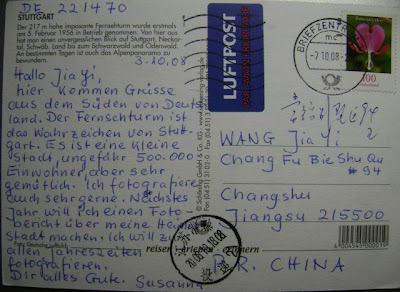 DE 221470
STUTTGART
Der 217 m hohe imposante Fernsehturm wurde erstmals
am 5. Februar 1956 in Betrieb genommen. Von hier aus
hat man einen unvergesslichen Blick auf Stuttgart, Neckar-
tal, Schwäb. Land bis zum Schwarzwald und Odenwald.
An bestimmten Tagen ist auch das Alpenpanorama zu
bewundern.
3-10.08
Hallo Jia Yi,
hier kommen Grüsse
aus dem Süden von Deutsch
land. Der Fernsehturm ist
das Wahrzeichen von Stutt-
gart. Es ist eine kleine
Stadt, ungefähr 500.000
Einwohner, aber sehr
gemütlich. Ich fotografiere
auch sehr gerne. Nächstes
Jahr will ich einen Foto-
bericht über meine Heimat
Stadt machen. Ich will zu
allen Jahreszeiten
fotografieren.
Dir alles Gute. Susanna
LUFTPOST
PAR AVION PRIORITAIRE
BRIEFZENTRUM
-7.10.08
100
WANG Jia Yi
Chang Fu Bie Shu Qu
# 94
Changshu
Jiangsu 215500
P.R. CHINA
reisen · erleben · erinnern
4004545000019